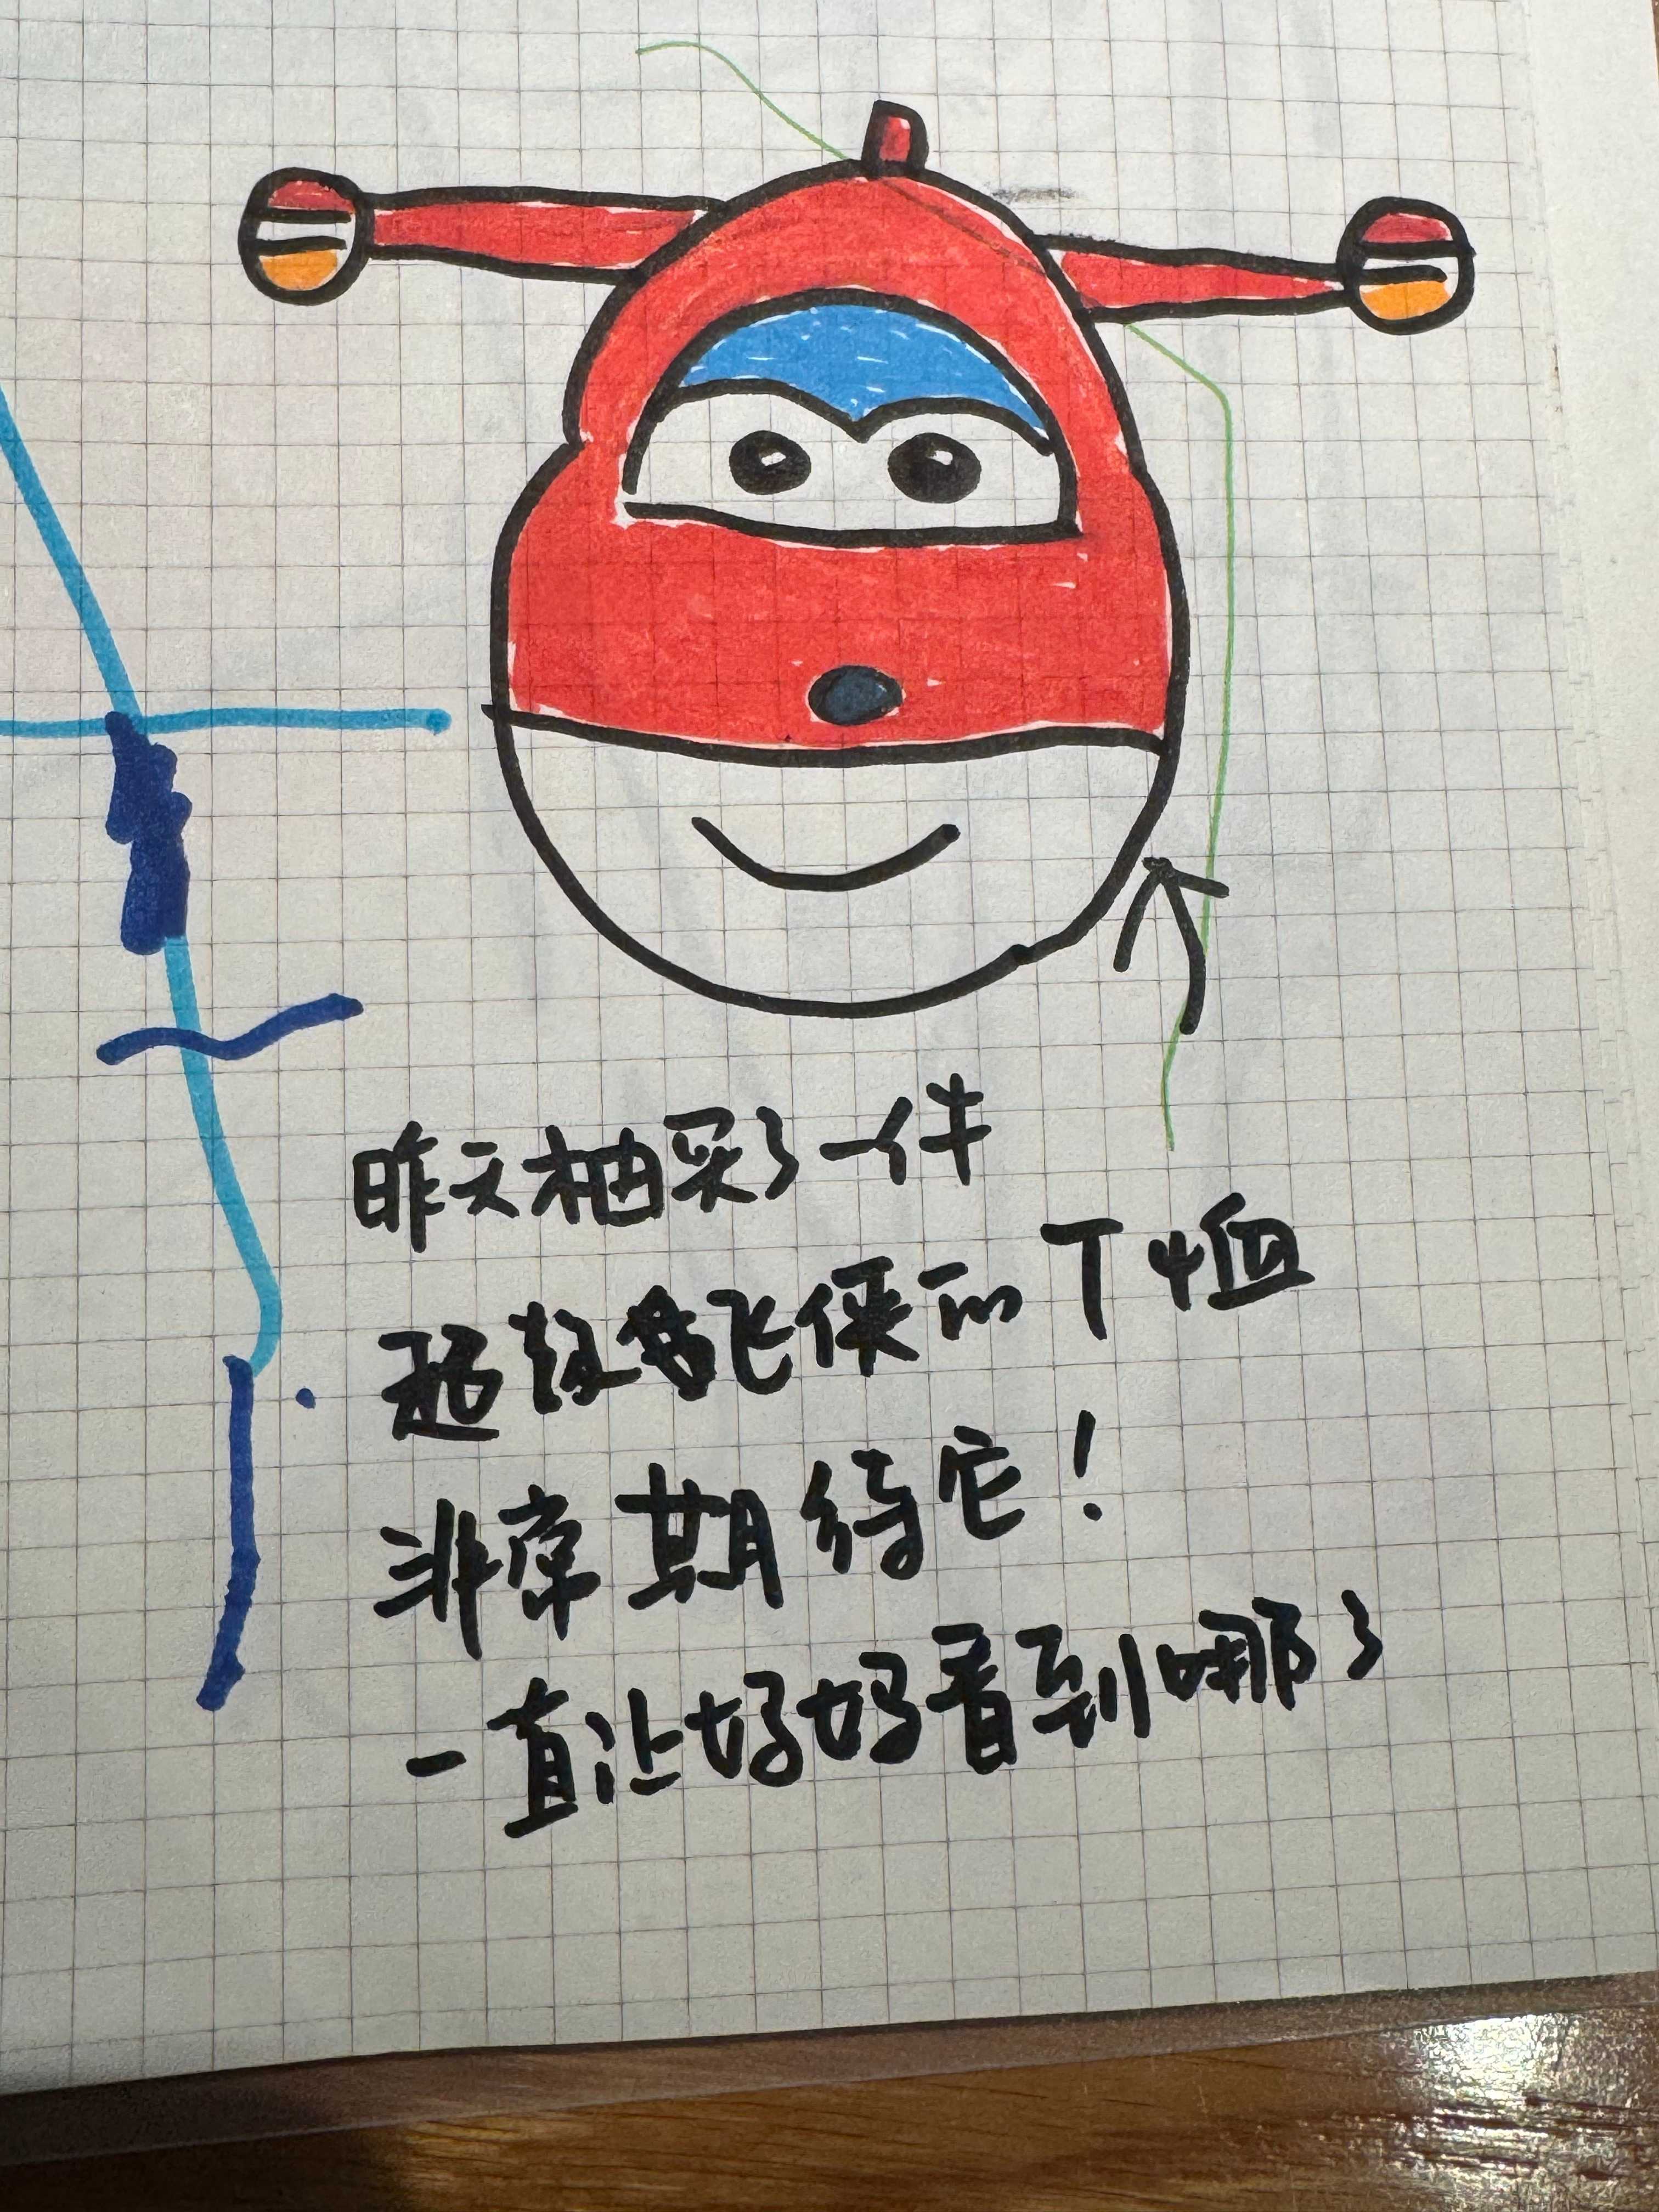 昨天柚买了一件
超级飞侠的T恤
非常期待它!
一直让妈妈看到哪了